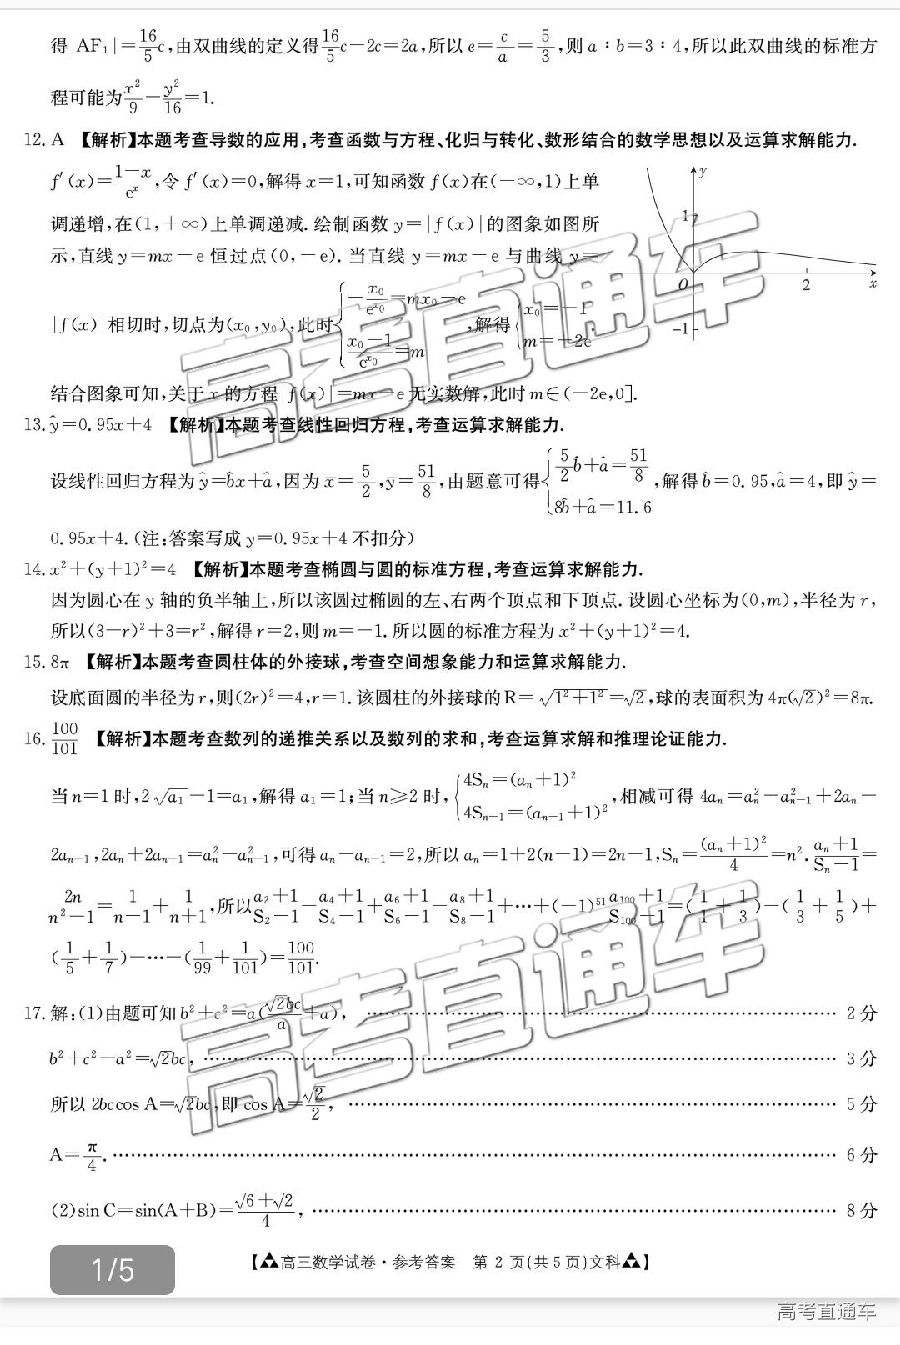 得 AF₁|=16/5c,由双曲线的定义得16/5c-2c=2a,所以 e=c/a=5/3,则 a:b=3:4,所以此双曲线的标准方
程可能为x²/9-y²/16=1.
12. A 【解析】本题考查导数的应用,考查函数与方程、化归与转化、数形结合的数学思想以及运算求解能力.
f′(x)=(1-x)/eˣ,令 f′(x)=0,解得 x=1,可知函数 f(x)在(-∞,1)上单
调递增,在(1,+∞)上单调递减.绘制函数 y=|f(x)|的图象如图所
示,直线 y=mx-e 恒过点(0,-e).当直线 y=mx-e 与曲线 y=
|f(x) 相切时,切点为(x₀,y₀),此时{-x₀/e^x₀=mx₀-e (x₀-1)/e^x₀=m ,解得{x₀=-1 m=-2e
y
1
O
2
x
-1
结合图象可知,关于 x 的方程 f(x)|=mx-e 无实数解,此时 m∈(-2e,0].
13. ŷ=0.95x+4 【解析】本题考查线性回归方程,考查运算求解能力.
设线性回归方程为 ŷ=b̂x+â,因为 x̄=5/2,ȳ=51/8,由题意可得{5/2b̂+â=51/8 8b̂+â=11.6 ,解得 b̂=0.95,â=4,即 ŷ=
0.95x+4.(注:答案写成 y=0.95x+4 不扣分)
14. x²+(y+1)²=4 【解析】本题考查椭圆与圆的标准方程,考查运算求解能力.
因为圆心在 y 轴的负半轴上,所以该圆过椭圆的左、右两个顶点和下顶点.设圆心坐标为(0,m),半径为 r,
所以(3-r)²+3=r²,解得 r=2,则 m=-1.所以圆的标准方程为 x²+(y+1)²=4.
15. 8π 【解析】本题考查圆柱体的外接球,考查空间想象能力和运算求解能力.
设底面圆的半径为 r,则(2r)²=4,r=1.该圆柱的外接球的 R=√(1²+1²)=√2,球的表面积为 4π(√2)²=8π.
16. 100/101 【解析】本题考查数列的递推关系以及数列的求和,考查运算求解和推理论证能力.
当 n=1 时,2√a₁-1=a₁,解得 a₁=1;当 n≥2 时,{4Sₙ=(aₙ+1)² 4Sₙ₋₁=(aₙ₋₁+1)² ,相减可得 4aₙ=aₙ²-aₙ₋₁²+2aₙ-
2aₙ₋₁,2aₙ+2aₙ₋₁=aₙ²-aₙ₋₁²,可得 aₙ-aₙ₋₁=2,所以 aₙ=1+2(n-1)=2n-1,Sₙ=(aₙ+1)²/4=n².(aₙ+1)/(Sₙ-1)=
2n/(n²-1)=1/(n-1)+1/(n+1),所以(a₂+1)/(S₂-1)-(a₄+1)/(S₄-1)+(a₆+1)/(S₆-1)-(a₈+1)/(S₈-1)+…+(-1)⁵¹(a₁₀₀+1)/(S₁₀₀-1)=(1/1+1/3)-(1/3+1/5)+
(1/5+1/7)-…-(1/99+1/101)=100/101.
17. 解:(1)由题可知 b²+c²=a(√2bc/a+a), …… 2 分
b²+c²-a²=√2bc, …… 3 分
所以 2bccos A=√2bc,即 cos A=√2/2, …… 5 分
A=π/4. …… 6 分
(2)sin C=sin(A+B)=(√6+√2)/4, …… 8 分
1/5
【高三数学试卷·参考答案 第 2 页(共 5 页)文科】
高考直通车
高考直通车
高考直通车